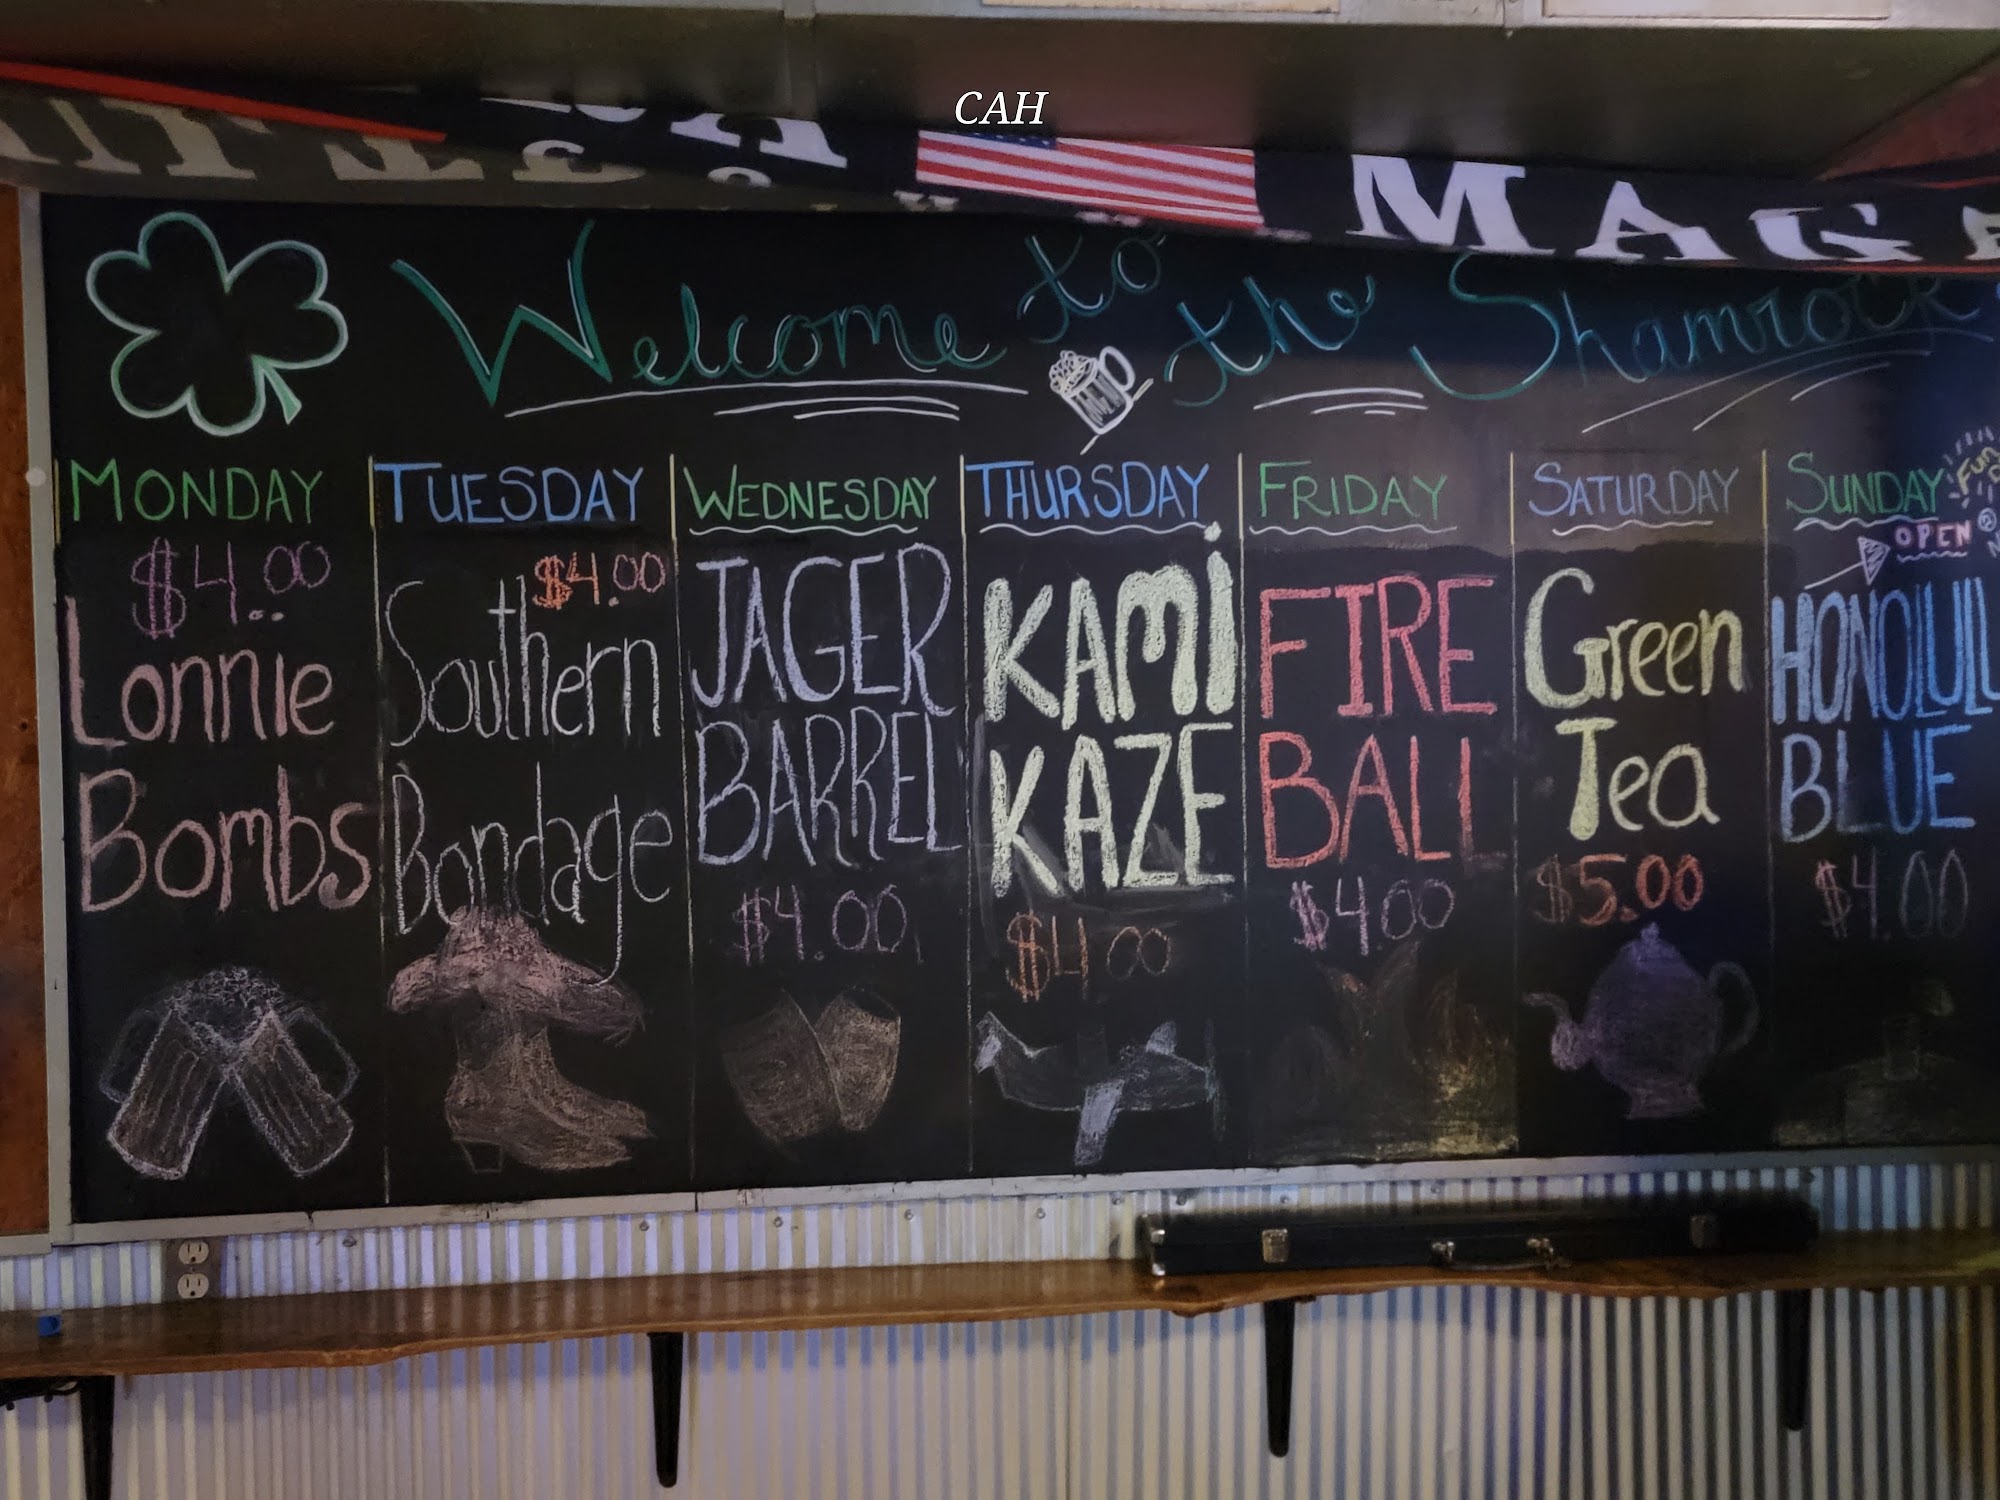 CAH
MAG
Welcome to the Shamrock
MONDAY
$4.00
Lonnie
Bombs
TUESDAY
$4.00
Southern
Bondage
WEDNESDAY
JAGER
BARREL
$4.00
THURSDAY
KAMi
KAZE
$4.00
FRIDAY
FIRE
BALL
$4.00
SATURDAY
Green
Tea
$5.00
SUNDAY
Fun
OPEN @
HONOLUL
BLUE
$4.00